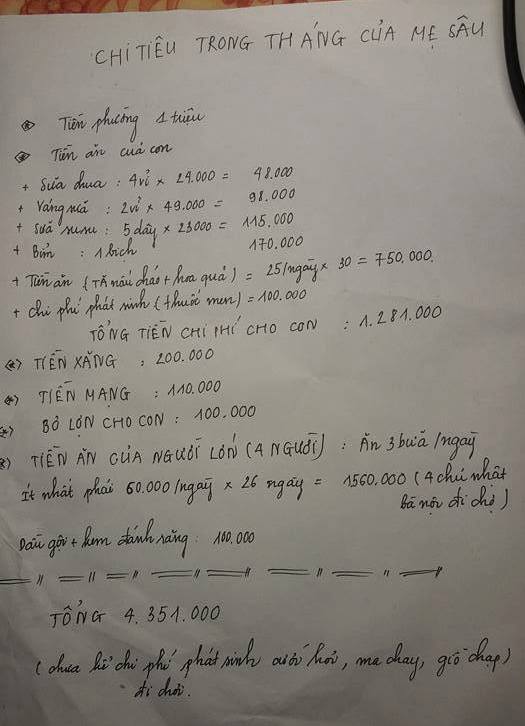 CHI TIÊU TRONG THÁNG CỦA MẸ SÂU
Tiền phường 1 triệu
Tiền ăn của con
+ Sữa chua : 4 vỉ x 24.000 = 48.000
+ Váng sữa : 2 vỉ x 49.000 = 98.000
+ Sữa susu : 5 dây x 23000 = 115.000
+ Bỉm : 1 bịch 170.000
+ Tiền ăn (TĂ nấu cháo + hoa quả) = 25/ngày x 30 = 750.000.
+ Chi phí phát sinh (thuốc men) = 100.000
TỔNG TIỀN CHI PHÍ CHO CON : 1.281.000
(*) TIỀN XĂNG : 200.000
(*) TIỀN MẠNG : 110.000
(*) BỎ LỢN CHO CON : 100.000
(*) TIỀN ĂN CỦA NGƯỜI LỚN (4 NGƯỜI) : Ăn 3 bữa /ngày
Ít nhất phải 60.000/ngày x 26 ngày = 1560.000 (4 chủ nhật
bà nội đi chợ)
Dầu gội + kem đánh răng : 100.000
TỔNG 4.351.000
(chưa kể chi phí phát sinh cưới hỏi, ma chay, giỗ chạp)
đi chơi.